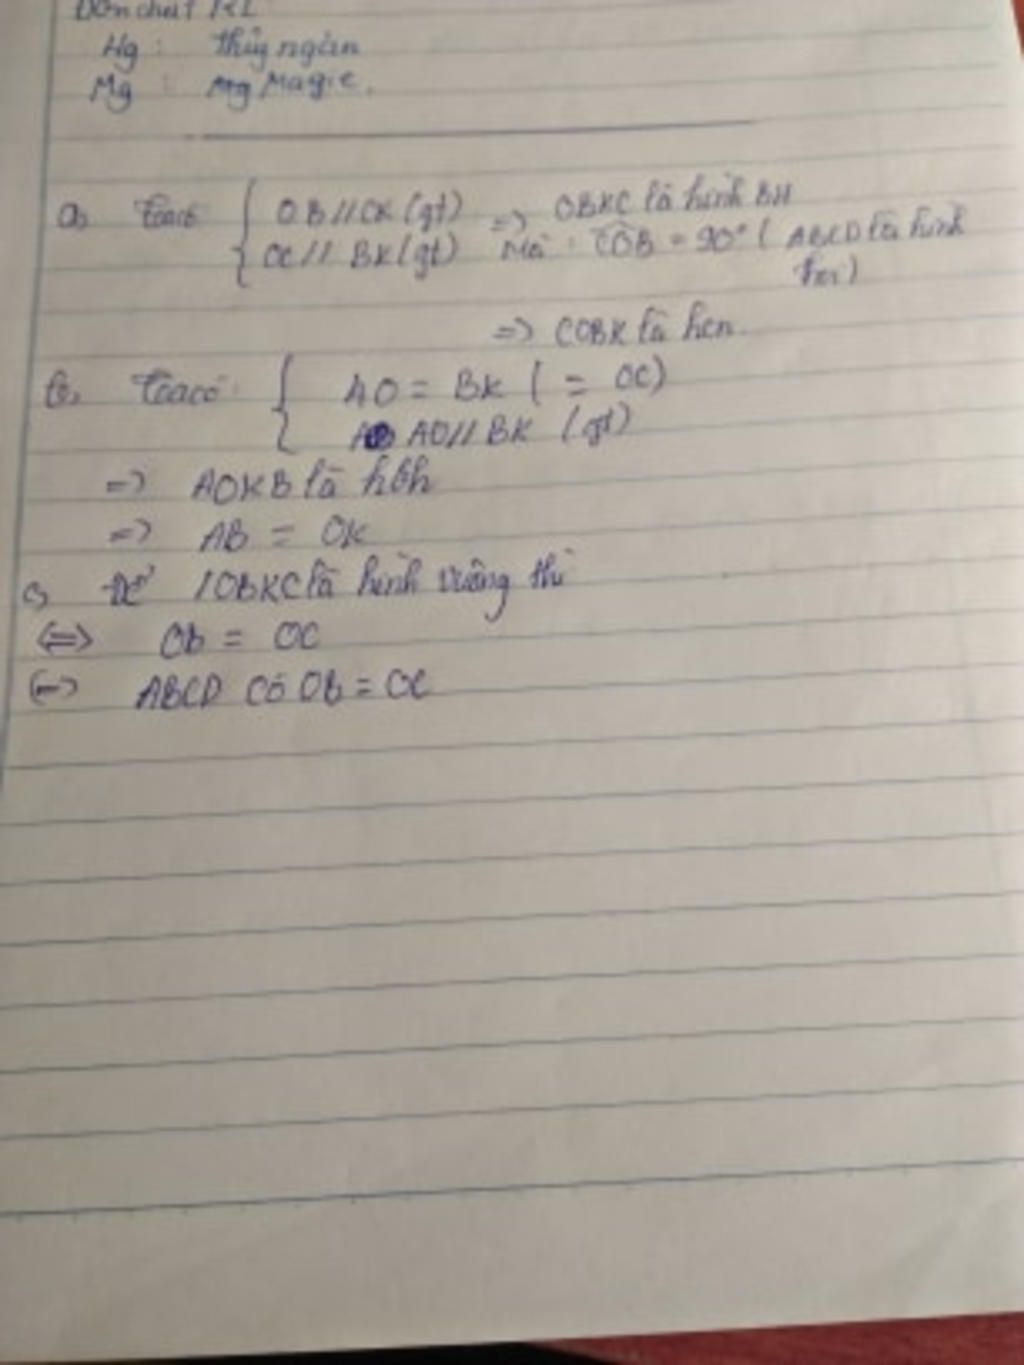 Đơn chất KL
Hg : thủy ngân
Mg : Mg Magie.
a, Ta có { OB//CK (gt) => OBKC là hình BH
OC// BK (gt) Mà : COB = 90° ( ABCD là hình
thoi)
=> COBK là hcn.
b, Ta có : { AO = BK ( = OC)
AO// BK (gt)
=> AOKB là hbh
=> AB = OK
c, Để OBKC là hình vuông thì
<=> Ob = OC
<=> ABCD có Ob = OC